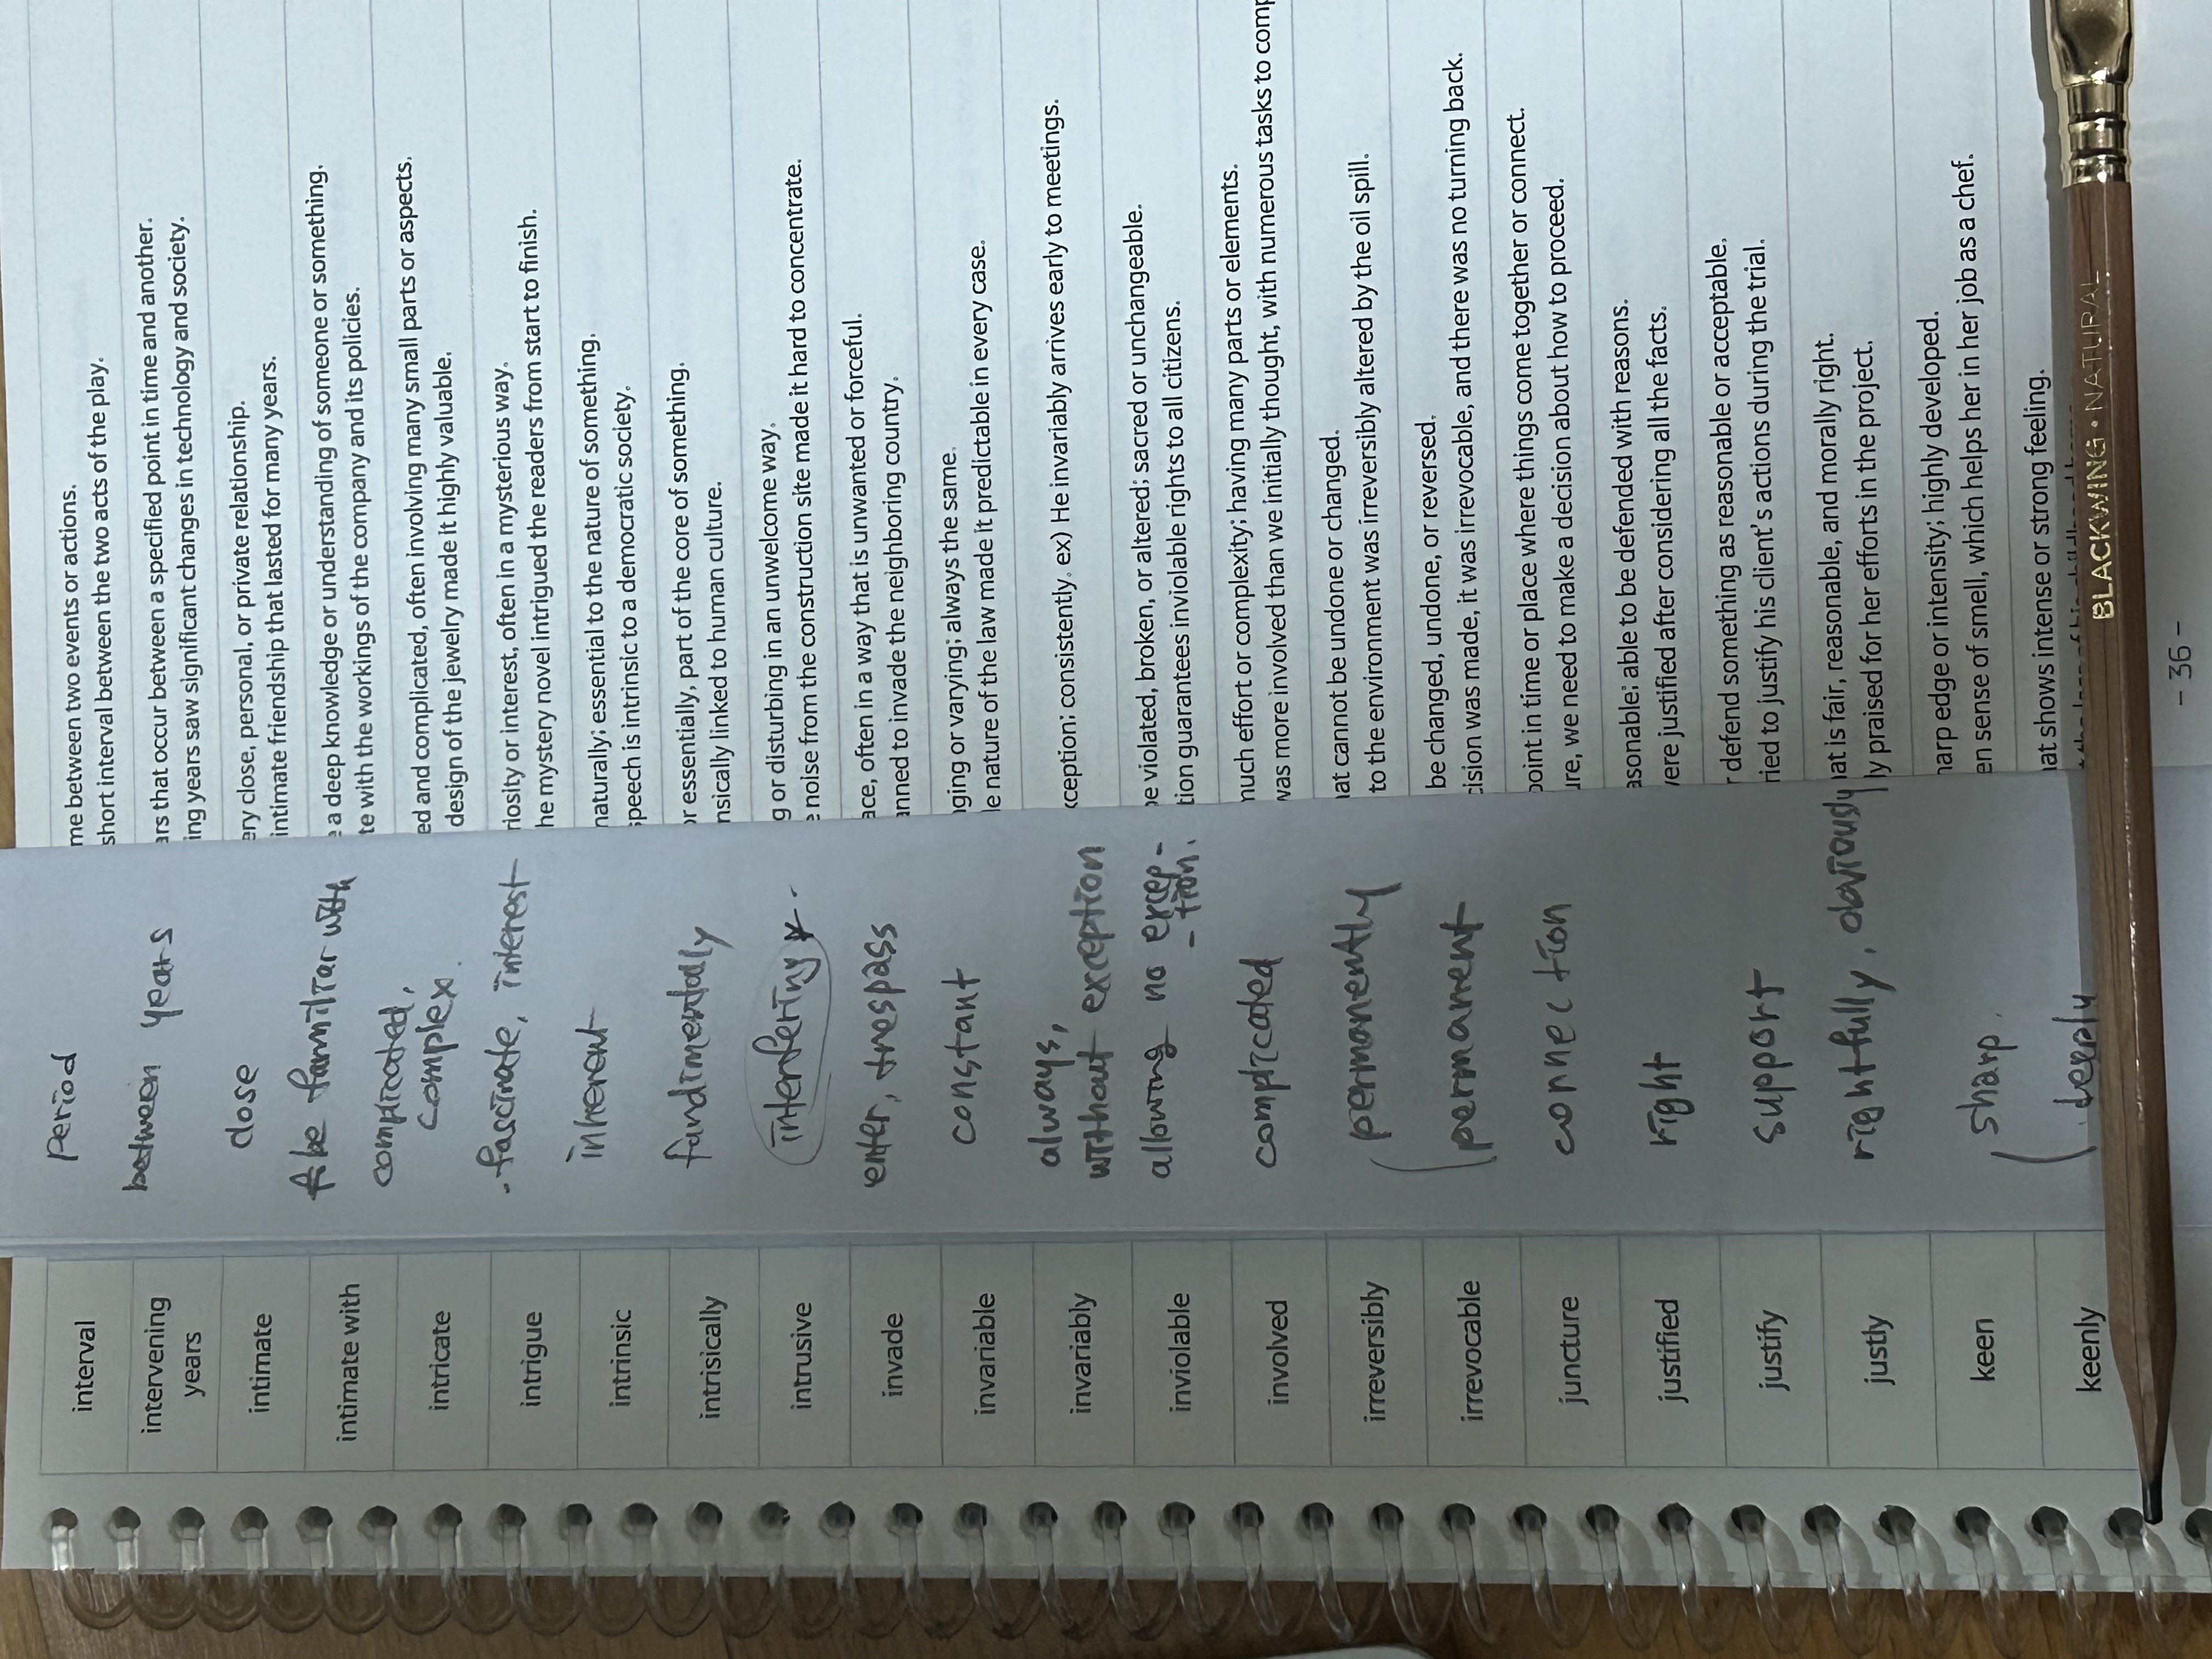 interval
Period
me between two events or actions.
short interval between the two acts of the play.
intervening
years
between years
ars that occur between a specified point in time and another.
ing years saw significant changes in technology and society.
intimate
close
ery close, personal, or private relationship.
intimate friendship that lasted for many years.
intimate with
be familiar with
a deep knowledge or understanding of someone or something.
te with the workings of the company and its policies.
intricate
complicated,
complex.
ed and complicated, often involving many small parts or aspects.
design of the jewelry made it highly valuable.
intrigue
- fascinate, interest
riosity or interest, often in a mysterious way.
he mystery novel intrigued the readers from start to finish.
intrinsic
inherent
naturally; essential to the nature of something.
speech is intrinsic to a democratic society.
intrisically
fundimentally
or essentially, part of the core of something.
nsically linked to human culture.
intrusive
interfering
g or disturbing in an unwelcome way.
e noise from the construction site made it hard to concentrate.
invade
enter, trespass
ace, often in a way that is unwanted or forceful.
anned to invade the neighboring country.
invariable
constant
ging or varying; always the same.
le nature of the law made it predictable in every case.
invariably
always,
without exception
xception; consistently. ex) He invariably arrives early to meetings.
inviolable
allowing no excep-
-tion.
be violated, broken, or altered; sacred or unchangeable.
tion guarantees inviolable rights to all citizens.
involved
complicated
much effort or complexity; having many parts or elements.
was more involved than we initially thought, with numerous tasks to comp
irreversibly
permanently
at cannot be undone or changed.
to the environment was irreversibly altered by the oil spill.
irrevocable
permanent
be changed, undone, or reversed.
cision was made, it was irrevocable, and there was no turning back.
juncture
connection
point in time or place where things come together or connect.
ure, we need to make a decision about how to proceed.
justified
right
asonable; able to be defended with reasons.
vere justified after considering all the facts.
justify
support
r defend something as reasonable or acceptable.
ried to justify his client's actions during the trial.
justly
rightfully, obviously
at is fair, reasonable, and morally right.
ly praised for her efforts in the project.
keen
sharp.
harp edge or intensity; highly developed.
en sense of smell, which helps her in her job as a chef.
keenly
deeply
at shows intense or strong feeling.
BLACKWING • NATURAL
- 36 -